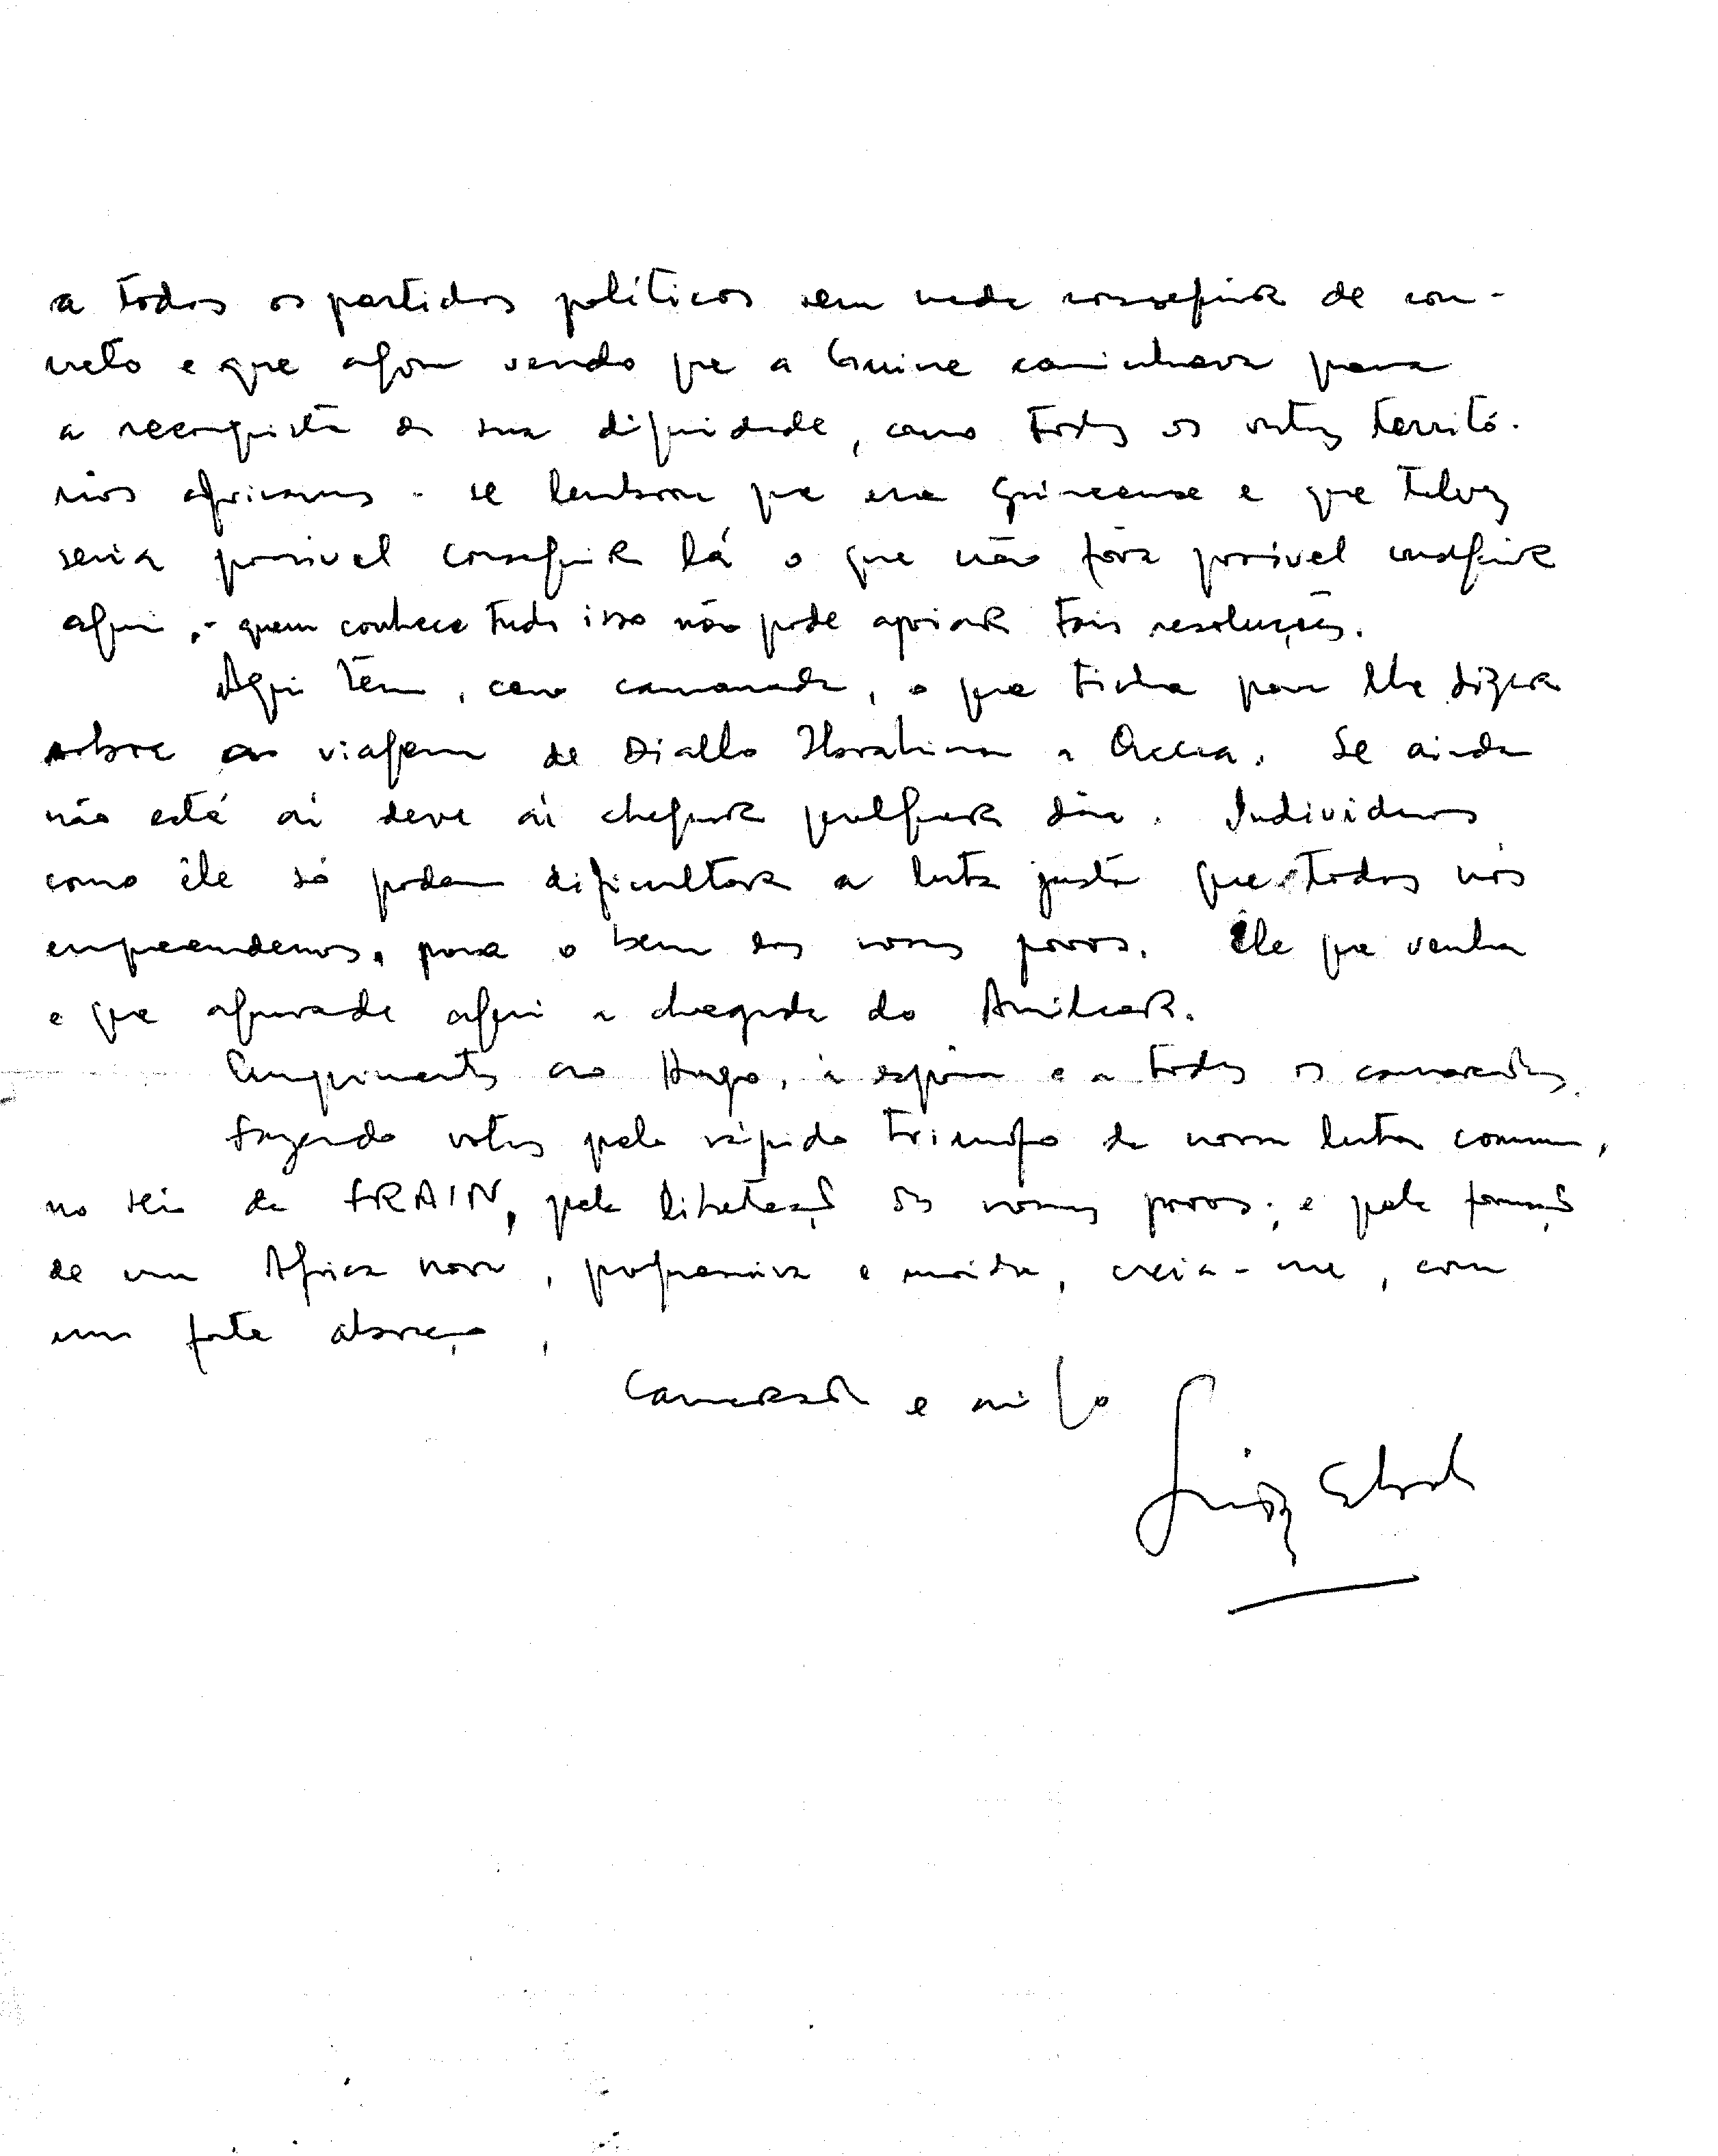 a todos os partidos políticos sem nada conseguir de con-
creto e que agora vendo que a Guiné caminhava para
a reconquista da sua dignidade, como todos os outros territó-
rios africanos - se lembrou que era Guineense e que talvez
seria possível conseguir lá o que não fôra possível conseguir
aqui, - quem conhece tudo isso não pode apoiar tais resoluções.
Aqui tem, caro camarada, o que tinha para lhe dizer
sobre a viagem de Diallo Ibrahima a Accra. Se ainda
não está aí deve aí chegar qualquer dia. Indivíduos
como êle só podem dificultar a luta justa que todos nós
empreendemos, para o bem dos nossos povos. Êle que venha
e que aguarde aqui a chegada do Amilcar.
Cumprimentos ao Hugo, à espôsa e a todos os camaradas.
Fazendo votos pelo rápido triunfo da nossa luta comum,
no seio da FRAIN, pela libertação dos nossos povos, e pela formação
de uma Africa nova, progressiva e unida, creia-me, com
um forte abraço,
Camarada e amigo
Luiz Cabral